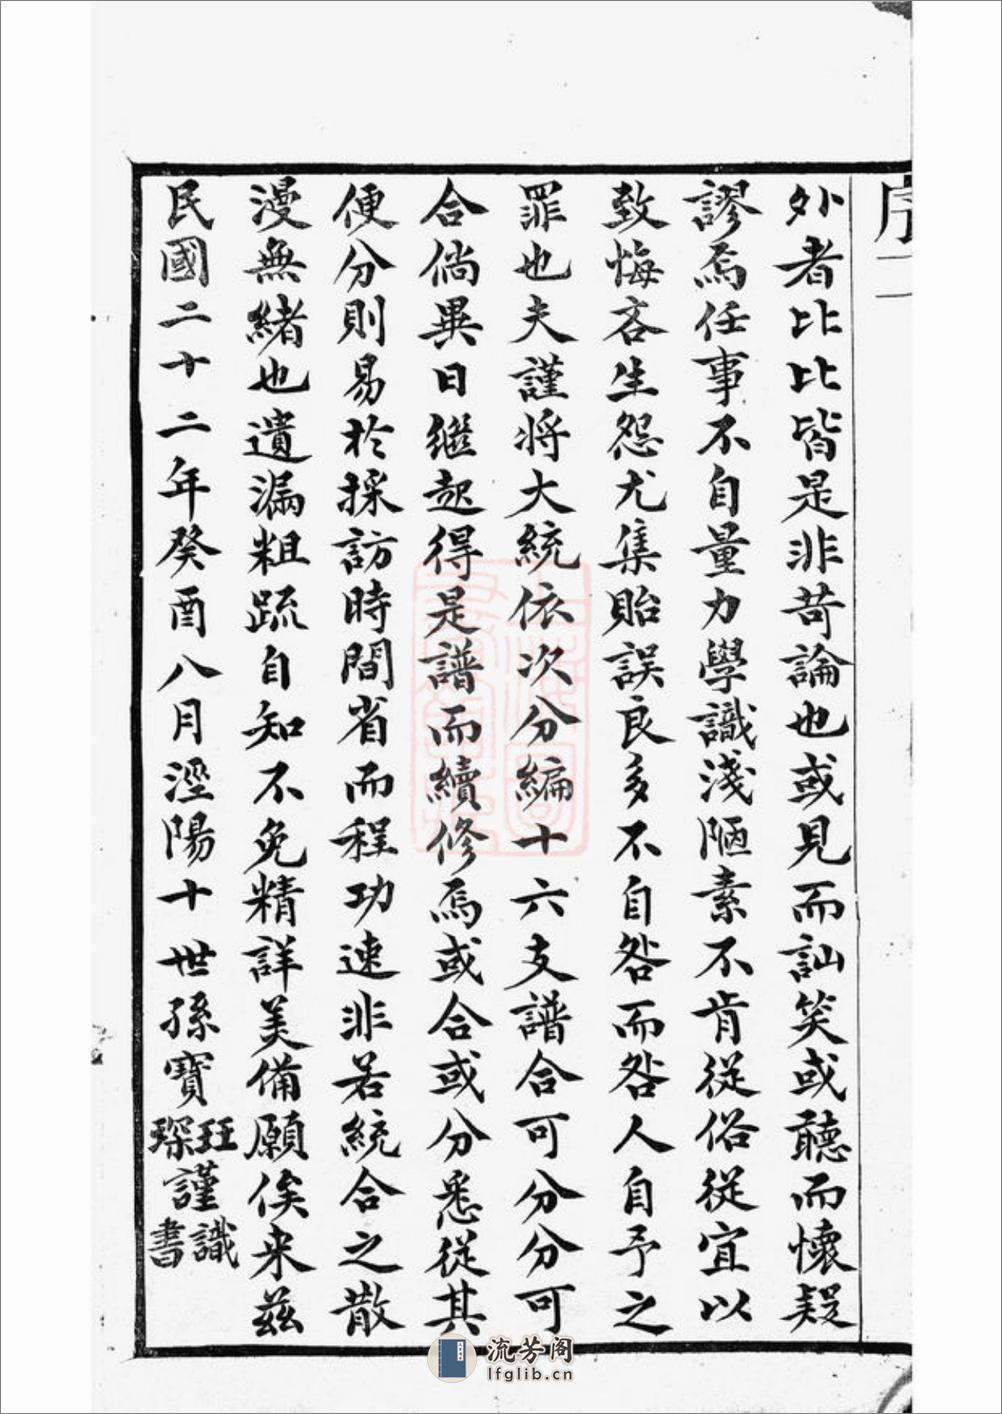 序二
外者比比皆是非苛論也或見而訕笑或聽而懷疑
謬爲任事不自量力學識淺陋素不肯從俗從宜以
致悔吝生怨尤集貽誤良多不自咎而咎人自予之
罪也夫謹將大統依次分編十六支譜合可分分可
合倘異日繼起得是譜而續修焉或合或分悉從其
便分則易於採訪時間省而程功速非若統合之散
漫無緒也遺漏粗疏自知不免精詳美備願俟来茲
民國二十二年癸酉八月涇陽十世孫寶珏琛謹識書
流芳阁
lfglib.cn